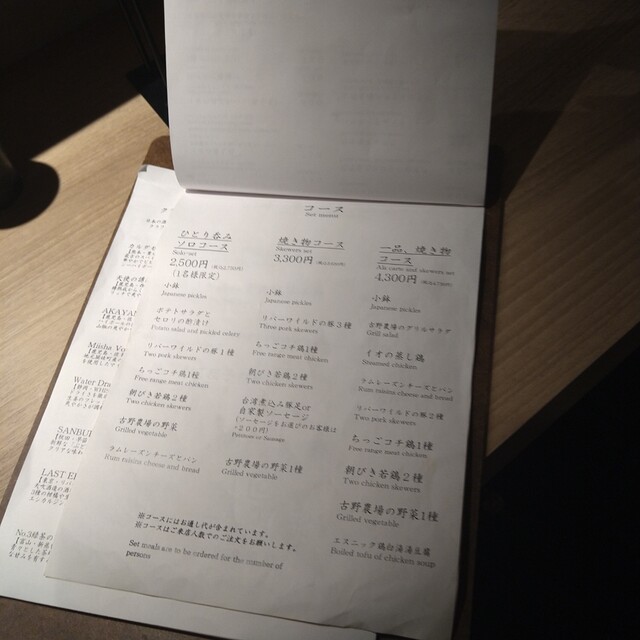 コース
ひとり呑み
ソロコース
Solo set
2,500円
(1名様限定)
小鉢
Japanese pickles
ポテトサラダと
セロリの酢漬け
Potato salad and pickled celery
リバーワイルドの豚1種
Two pork skewers
ちっごコチ鶏1種
Free range meat chicken
朝びき若鶏2種
Two chicken skewers
古野農場の野菜
Grilled vegetable
ラムレーズンチーズとパン
Rum raisins cheese and bread
焼き物コース
Skewers set
3,300円
小鉢
Japanese pickles
リバーワイルドの豚3種
Three pork skewers
ちっごコチ鶏1種
Free range meat chicken
朝びき若鶏2種
Two chicken skewers
台湾煮込み豚足or
自家製ソーセージ
(ソーセージをお選びのお客様は
+200円)
古野農場の野菜1種
Grilled vegetable
一品、焼き物
コース
Ala carte and skewers set
4,300円
小鉢
Japanese pickles
古野農場のグリルサラダ
Grill salad
イオの蒸し鶏
Steamed chicken
ラムレーズンチーズとパン
Rum raisins cheese and bread
リバーワイルドの豚2種
Two pork skewers
ちっごコチ鶏1種
Free range meat chicken
朝びき若鶏2種
Two chicken skewers
古野農場の野菜1種
Grilled vegetable
エスニック鶏白湯湯豆腐
Boiled tofu of chicken soup
※コースにはお通し代が含まれています。
※コースはご来店人数でのご注文をお願いします。
Set meals are to be ordered for the number of
persons
天使の
AKAYA
Water Dra
SANBU
LAST E
No.3緑茶の